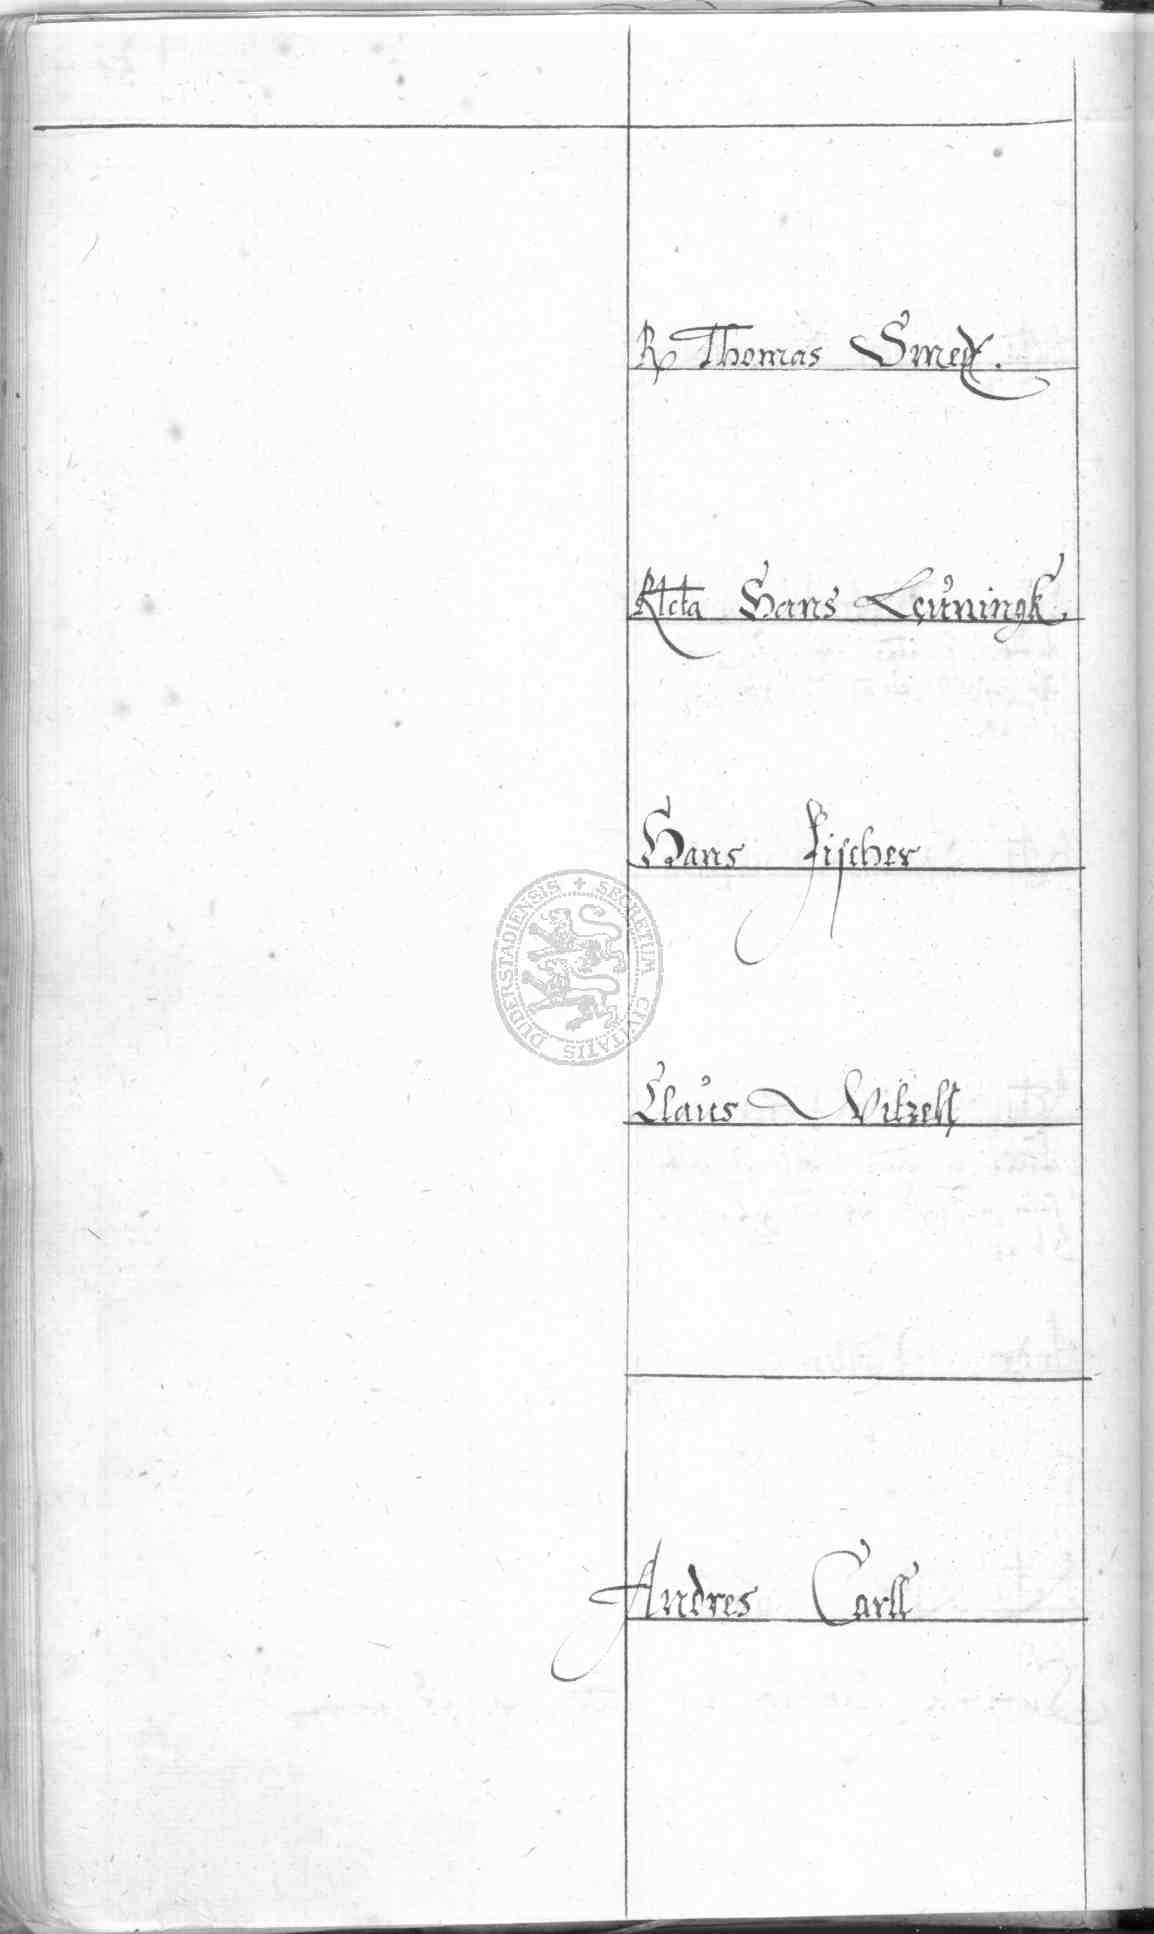 R Thomas Smedt.
Rlcta Hans Leuningk.
Hans Fischer
SECRETUM CIVITATIS DUDERSTADIENSIS
Claus Witzell
Andres Carll